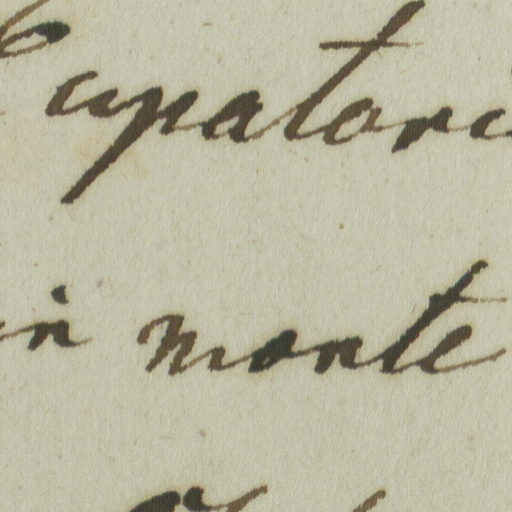 Eupatori
in monte